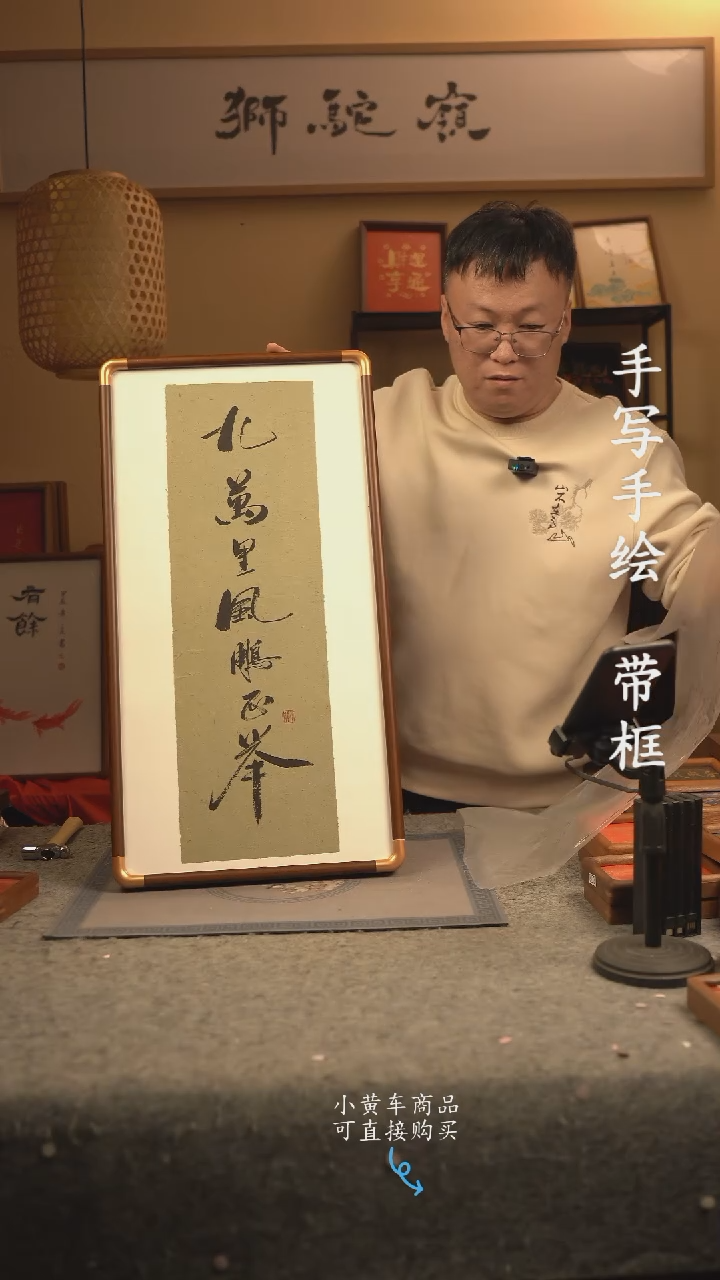 獅駝嶺
九萬里風鵬正舉
手写手绘
带框
有餘
小黄车商品
可直接购买